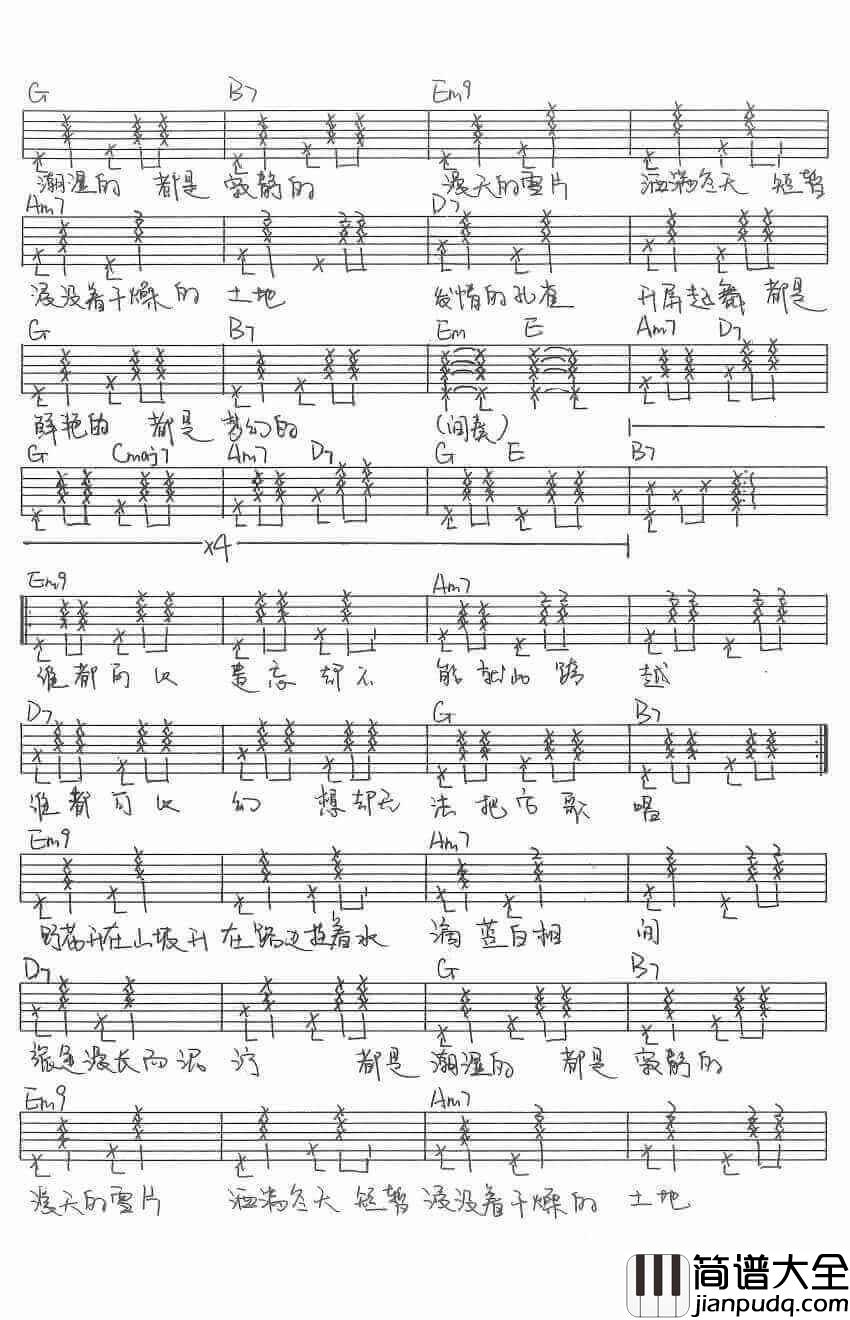 G B7 Em9
潮湿的 都是 寂静的 漫天的雪片 洒满冬天 短暂
Am7 D7
浸没着干燥的 土地 发情的孔雀 开屏起舞 都是
G B7 Em E Am7 D7
鲜艳的 都是 梦幻的 (间奏)
G Cmaj7 Am7 D7 G E B7
x4
Em9 Am7
谁都可以 遗忘却不 能就此 跨 越
D7 G B7
谁都可以 幻 想却无 法把它歌 唱
Em9 Am7
野花开在山坡开在路边挂着水 滴蓝白相 间
D7 G B7
漫长而泥泞 都是 潮湿的 都是 寂静的
Em9 Am7
漫天的雪片 洒满冬天 短暂 浸没着干燥的 土地
简谱大全
jianpudq.com